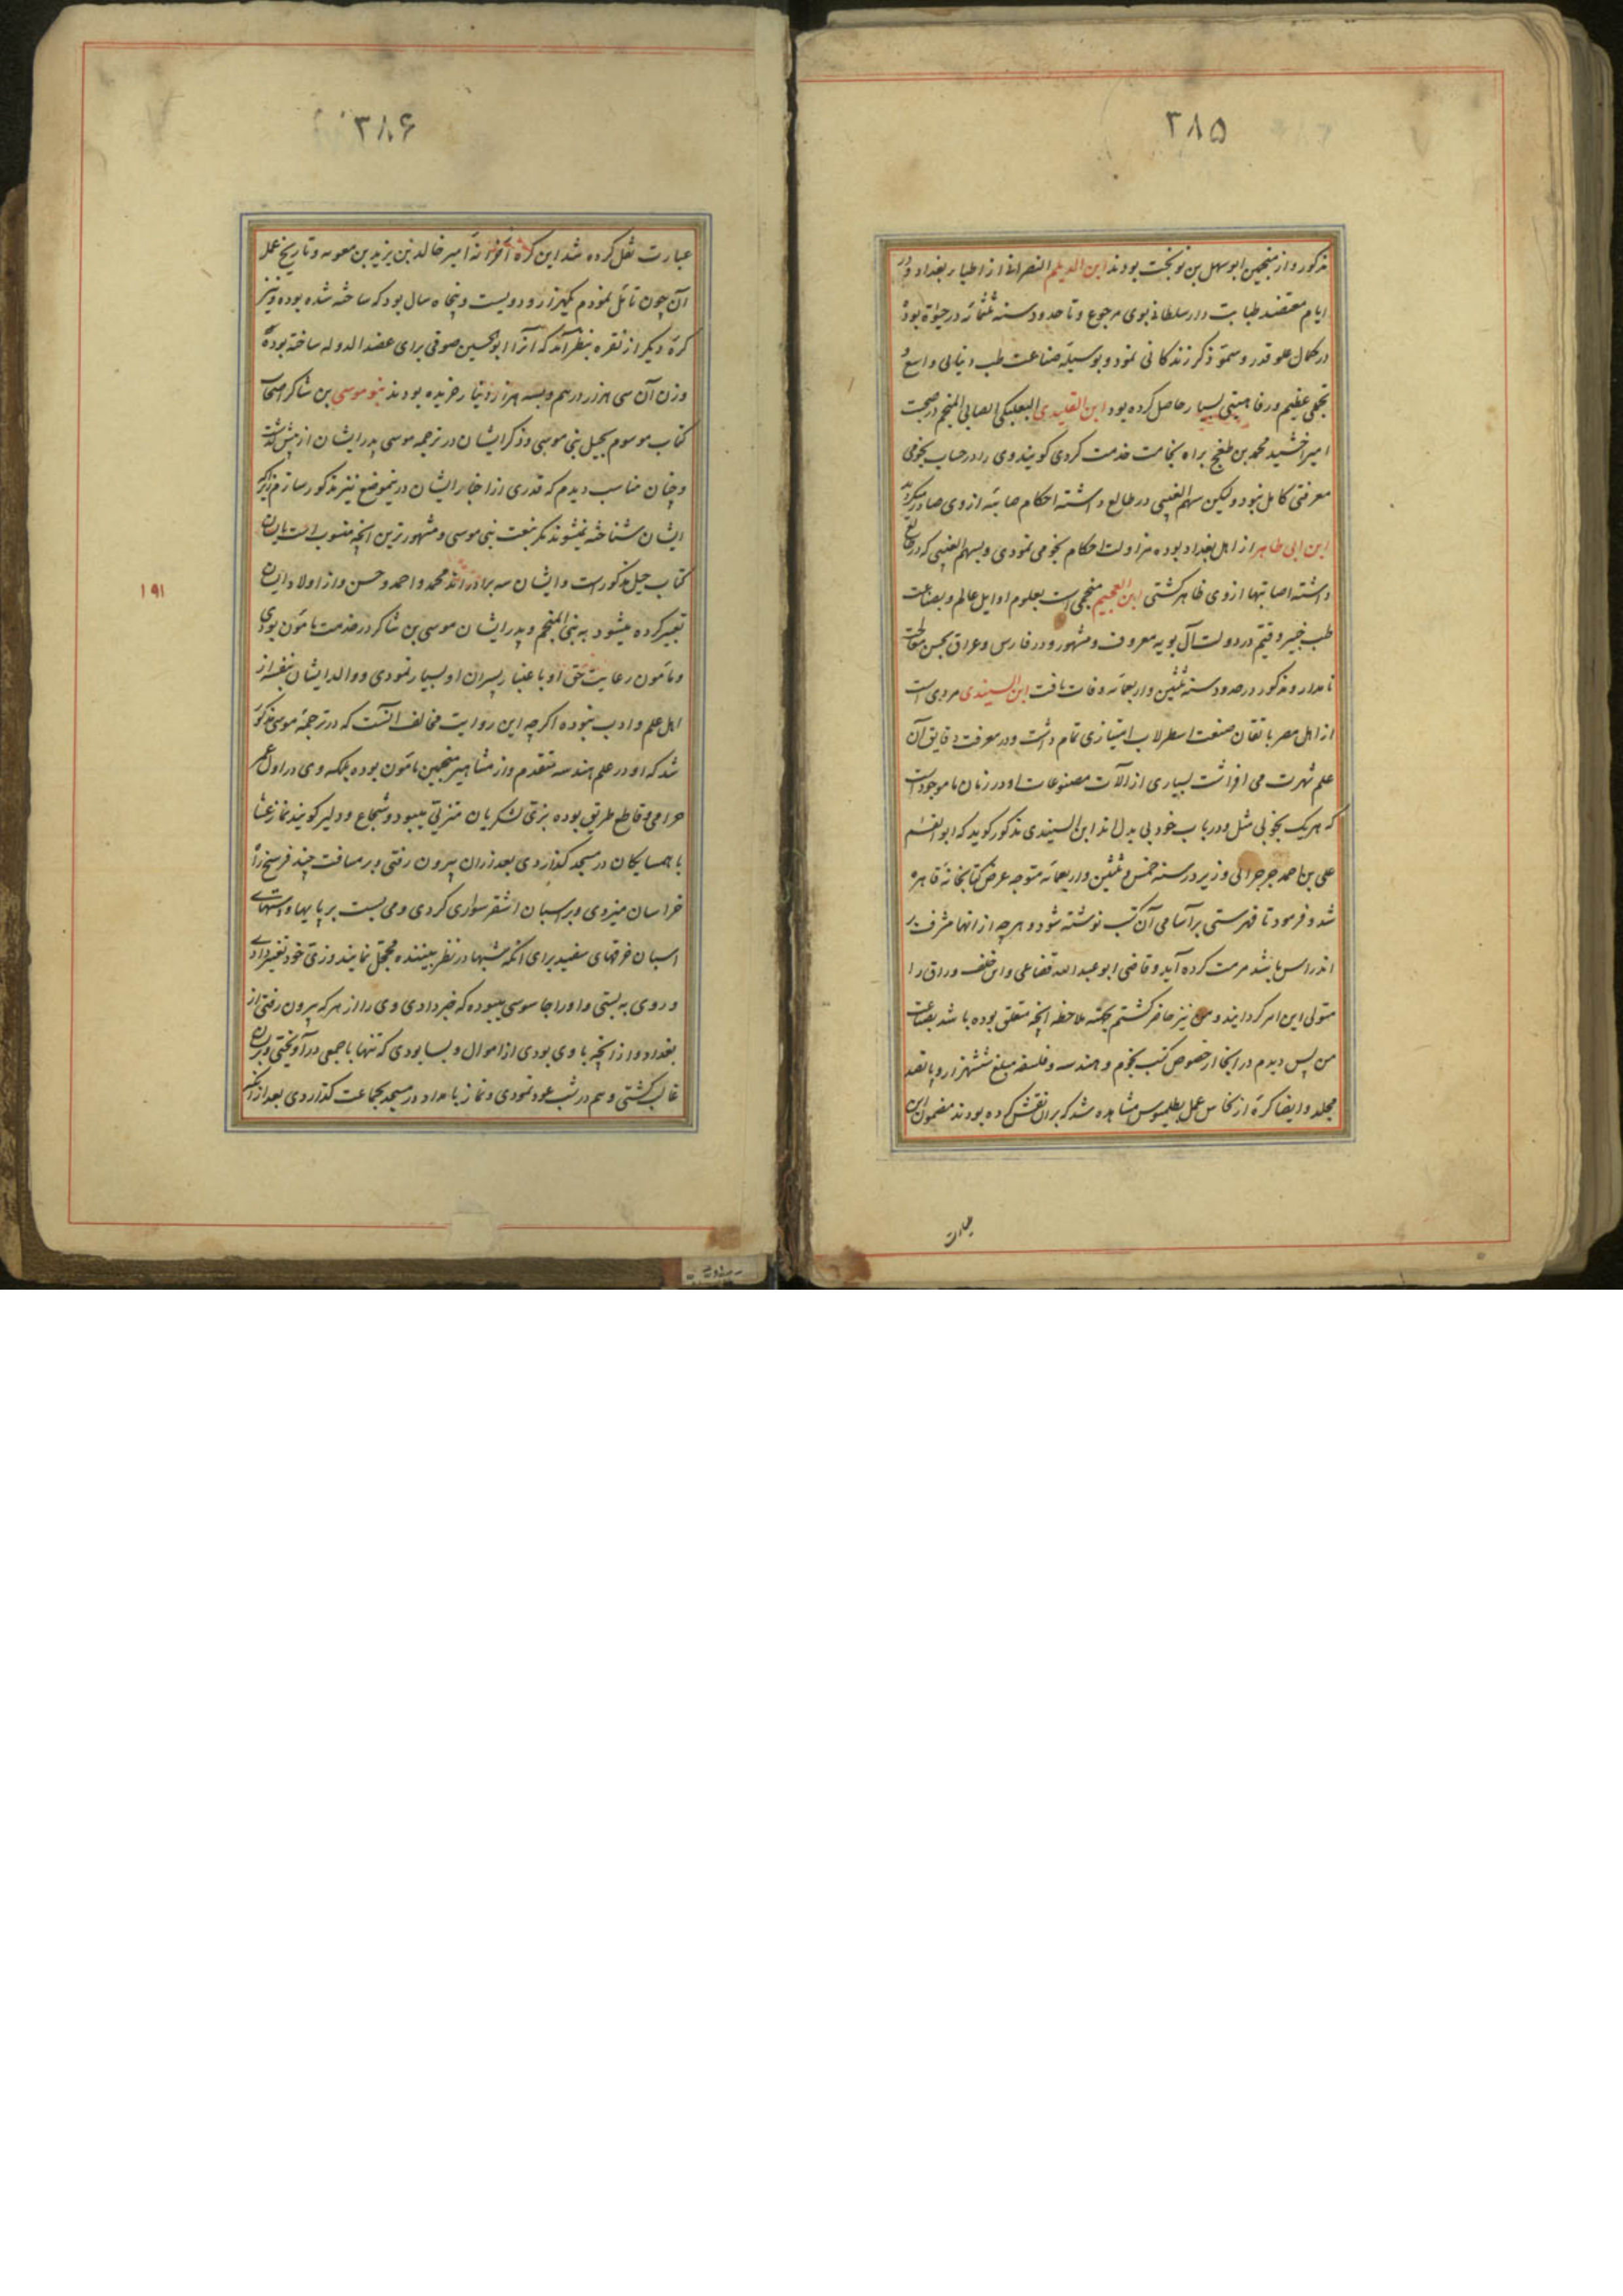 ۳۸۵
مذکور و از منجمین ابوسهل بن نوبخت بودند ابن الدیلم النصرانی از اطبای بغداد و در
ایام معتضد طبابت دار سلطانی بوی مرجوع و تا حدود سنه ثلثمائه در حیوة بود و
در کمال علو قدر و سمو ذکر زندکانی نمود و بوسیله صناعت طب دنیایی واسع و
تجملی عظیم و رفاهیتی بسیار حاصل کرده بود ابن القلیدی البعلبکی الصابی المنجم در صحبت
امیر اخشید محمد بن طغج براه نجامت خدمت کردی کویند وی را در حساب نجومی
معرفتی کامل نبود ولیکن سهم الغیبی در طالع داشته احکام صایبه از وی صادر میکردید
ابن ابی طاهر از اهل بغداد بوده مزاولت احکام نجومی نمودی و بسهم الغیبی که در طالع
داشته اصابتها از وی ظاهر کشتی ابن العجیم منجمی است بعلوم اوایل عالم و بصناعت
طب خبیر و قیم در دولت آل بویه معروف و مشهور و در فارس و عراق بحسن معالجت
نامدار و مذکور در حدود سنه ثلثین و اربعمائه وفات یافت ابن السیندی مردی است
از اهل مصر باتقان صنعت اسطرلاب امتیازی تمام داشت و در معرفت دقایق آن
علم شهرت می افراشت بسیاری از آلات مصنوعات او در زمان ما موجود است
که هر یک بخوبی مثل و در باب خود بی بدل اند ابن السیندی مذکور کوید که ابو القسم
علی بن احمد جرجرائی وزیر در سنه خمس و ثلثین و اربعمائه متوجه عرض کتابخانه قاهره
شد و فرمود تا فهرستی بر اسامی آن کتب نوشته شود و هر چه از انها مشرف بر
اندراس باشد مرمت کرده آید و قاضی ابو عبدالله قضاعی و ابن خلف وراق را
متولی این امر کردانیدند و من نیز حاضر کشتم بجهته ملاحظه انچه متعلق بوده باشد بصناعت
من پس دیدم در انجا از خصوص کتب نجوم و هندسه و فلسفه مبلغ ششهزار و پانصد
مجلد و ایضا کره از نحاس عمل بطلیموس مشاهده شد که بران نقش کرده بودند مضمون این
عبارت
۳۸۶
عبارت نقل کرده شد این کره از خزانه امیر خالد بن یزید بن معویه و تاریخ عمل
آن چون تامل نمودم یکهزار و دویست و پنجاه سال بود که ساخته شده بوده و نیز
کره دیکر از نقره بنظر آمد که آنرا ابو الحسین صوفی برای عضد الدوله ساخته بوده
وزن آن سی هزار درهم و بسه هزار دینار خریده بودند بنو موسی بن شاکر اصحاب
کتاب موسوم بحیل بنی موسی و ذکر ایشان در ترجمه موسی پدر ایشان از پیش کذشت
و چنان مناسب دیدم که قدری از اخبار ایشان درینموضع نیز مذکور سازم زیرا که
ایشان شناخته نمیشوند مکر بنعت بنی موسی و مشهورترین انچه منسوب است بایشان
کتاب حیل مذکور است و ایشان سه برادرند محمد و احمد و حسن و از اولاد ایشان
تعبیر کرده میشود به بنی المنجم و پدر ایشان موسی بن شاکر در خدمت مامون بودی
و مامون رعایت حق او باعتبار پسران او بسیار نمودی و والد ایشان بنفسه از
اهل علم و ادب نبوده اکرچه این روایت مخالف انست که در ترجمه موسی مذکور
شد که او در علم هندسه متقدم و از مشاهیر منجمین مامون بوده بلکه وی در اول عمر
حرامی و قاطع طریق بوده بزی لشکریان متزی میبود و شجاع و دلیر کویند نماز عشا
با همسایکان در مسجد کذاردی بعد ازان بیرون رفتی و بر مسافت چند فرسخ راه
خراسان میزدی و بر اسبان اشقر سواری کردی و می بست بر پایها و دستهای
اسبان خرقهای سفید برای انکه شبها در نظر بیننده محجل نمایند و زی خود تغییر دادی
و روی به بستی و او را جاسوسی میبوده که خبر دادی وی را از هر که بیرون رفتی از
بغداد و از انچه با وی بودی از اموال و بسا بودی که تنها با جمعی در آویختی و بران
غالب کشتی و هم در شب عود نمودی و نماز بامداد در مسجد بجماعت کذاردی بعد از انکه
۱۹۱